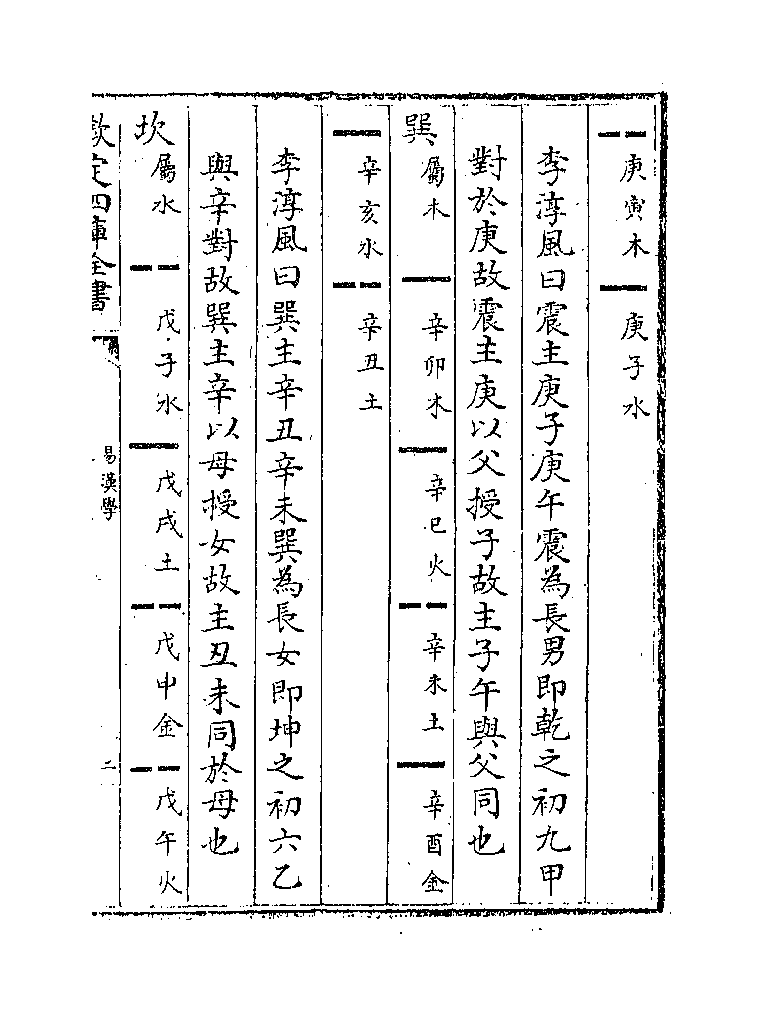 庚寅木 庚子水
李淳風曰震主庚子庚午震為長男即乾之初九甲
對於庚故震主庚以父授子故主子午與父同也
巽屬木 辛卯木 辛巳火 辛未土 辛酉金
辛亥水 辛丑土
李淳風曰巽主辛丑辛未巽為長女即坤之初六乙
與辛對故巽主辛以母授女故主丑未同於母也
坎屬水 戊子水 戊戌土 戊申金 戊午火
欽定四庫全書
易漢學
二